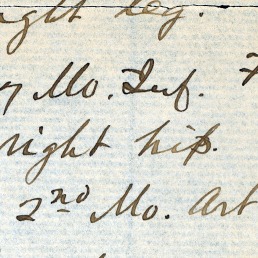 right leg.
7 Mo. Inf. F
right hip.
2nd Mo. Art